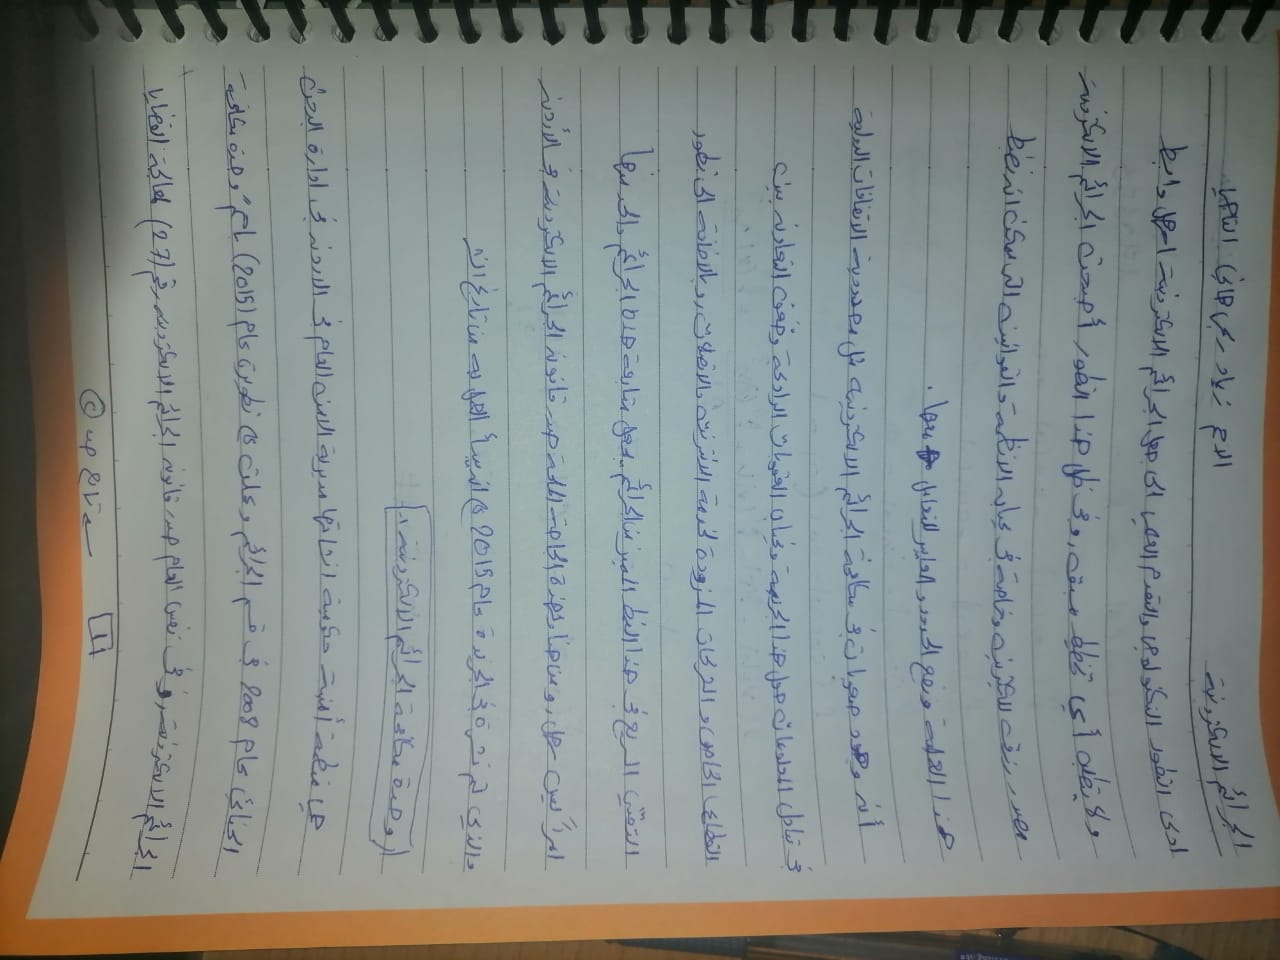 الجرائم الالكترونية
الاسم زياد يحيى هاني
ادى التطور التكنولوجي والتقدم العلمي الى جعل الجرائم الالكترونية اسهل وابسط
ولا يتطلب أي تخطيط مسبق، وفي ظل هذا التطور أصبحت الجرائم الالكترونية
مصدر رزق للكثيرين وخاصة في غياب الانظمة والقوانين التي يمكن ان تضبط
هذا العملية وتضع الحدود والمعايير للتعامل معها.
أن وجود صعوبات في مكافحة الجرائم الالكترونية مثل محدودية الاتفاقات الدولية
في تبادل المعلومات حول هذا الجريمة وغياب العقوبات الرادعة وضعف التعاون بين
القطاع الخاص و الشركات المزودة لخدمة الانترنت والاتصالات، وبالاضافة الى تطور
التقني السريع في هذا النمط المميز من الجرائم يجعل متابعة هذه الجرائم والحد منها
امراً ليس سهل، ومن هنا ولهذة الحاجة الملحة صدر قانون الجرائم الالكترونية في الأردن
والذي تم نشرة في الجريدة عام 2015 ان يبدأ العمل به من تاريخ
وحدة مكافحة الجرائم الالكترونية:
هي منظمة أمنية حكومية انشاتها مديرية الامن العام في الاردن في ادارة البحث
الجنائي عام 2008 في قسم الجرائم وعملت على تطويرة عام (2015) باسم "وحدة مكافحة
الجرائم الالكترونية، وفي نفس العام صدر قانون الجرائم الالكترونية رقم (27) لمعالجة القضايا
1
يتابع ص 2